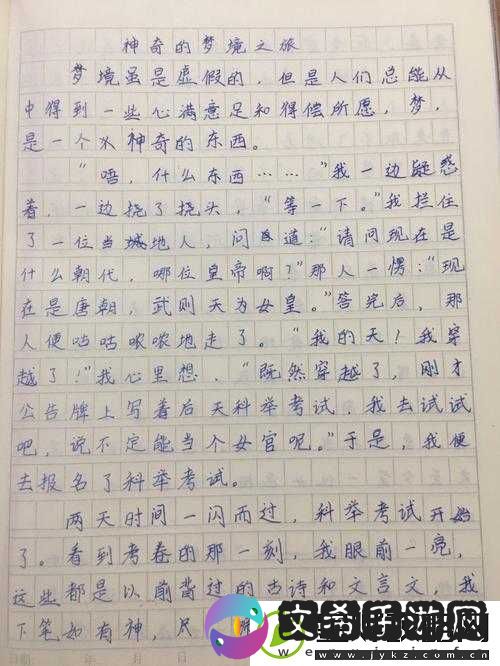 神奇的梦境之旅
梦境虽是虚假的,但是人们总能从
中得到一些心满意足和得偿所愿,梦,
是一个神奇的东西。
“唔,什么东西……”我一边疑惑
着,一边挠了挠头,“等一下。”我拦住
了一位当地人,问道:“请问现在是
什么朝代,哪位皇帝啊?”那人一愣:“现
在是唐朝,武则天为女皇。”答完后,那
人便咕咕哝哝地走了。“我的天!我穿
越了!”我心里想,“既然穿越了,刚才
公告牌上写着后天科举考试,我去试试
吧,说不定能当个女官呢。”于是,我便
去报名了科举考试。
两天时间一闪而过,科举考试开始
了。看到考卷的那一刻,我眼前一亮,
这些都是以前背过的古诗和文言文,我
下笔如有神,只
文希手游网
www.jykz.com.cn